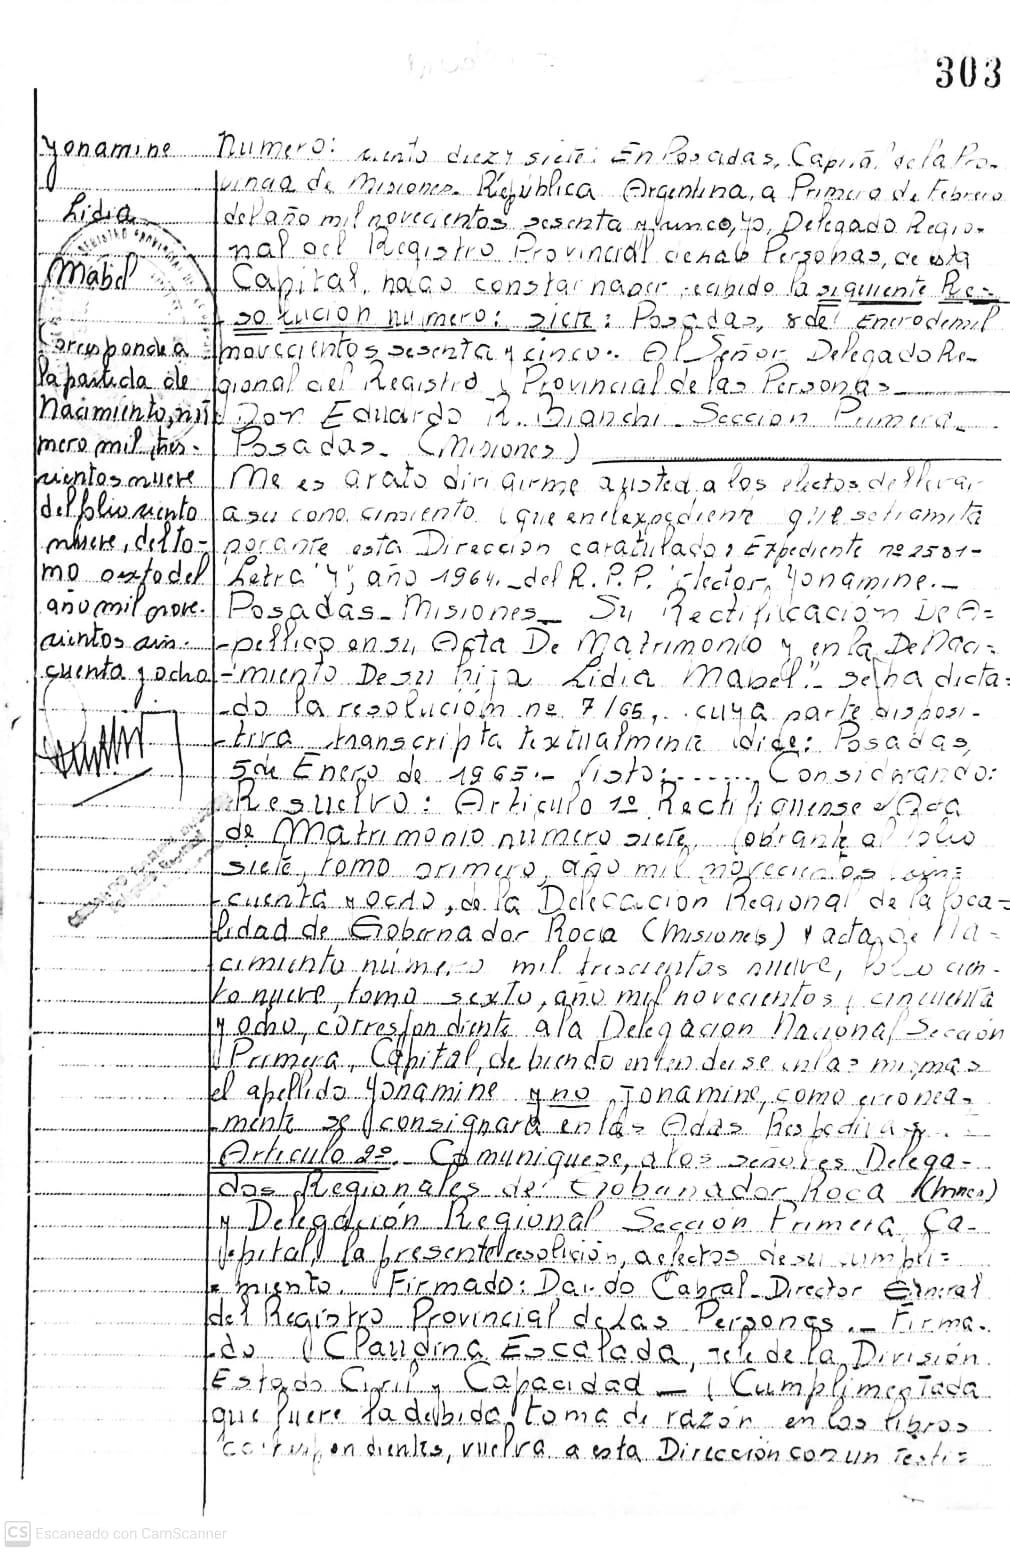 303
Yonamine
Lidia
Mabel
Corresponde a
la partida de
Nacimiento, nú
mero mil tres-
cientos nueve
del folio ciento
nueve, del to-
mo sexto del
año mil nove-
cientos cin-
cuenta y ocho
Numero: ciento diez y siete: En Posadas, Capital de la Pro-
vincia de Misiones. República Argentina, a Primero de Febrero
del año mil novecientos sesenta y cinco, yo, Delegado Regio-
nal del Registro Provincial de las Personas, de esta
Capital, hago constar haber recibido la siguiente Re=
solucion numero: siete: Posadas, 8 de Enero de mil
novecientos sesenta y cinco.- Al Señor Delegado Re-
gional del Registro Provincial de las Personas
Don Eduardo R. Bianchi Seccion Primera_
Posadas_ (Misiones)
Me es grato dirigirme a usted, a los efectos de llevar
a su conocimiento que en el expediente que se tramita
por ante esta Direccion caratulado: Expediente nº 2581-
Letra "Y", año 1964._ del R.P.P. "Hector, Yonamine._
Posadas_ Misiones_ Su Rectificacion De A=
-pellido en su Acta De Matrimonio y en la De Naci=
-miento De su hija Lidia Mabel"._ se ha dicta-
-do la resolución nº 7/65, cuya parte disposi-
-tiva transcripta textualmente dice: Posadas,
5 de Enero de 1965.- Visto:....., Considerando:
Resuelvo: Articulo 1º Rectifiquense el Acta
de Matrimonio numero siete, obrante al folio
siete, tomo primero, año mil novecientos cin=
-cuenta y ocho, de la Delegacion Regional de la loca-
-lidad de Gobernador Roca (Misiones) y acta de Na=
cimiento número mil trescientos nueve, folio cien-
to nueve, tomo sexto, año mil novecientos cincuenta
y ocho, correspondiente a la Delegacion Nacional Sección
Primera, Capital, debiendo entenderse en las mismas
el apellido Yonamine y no Jonamine, como erronea-
mente se consignara en las Actas Respectivas.
Articulo 2º_ Comuniquese, a los señores Delega-
dos Regionales de Gobernador Roca (Mnes)
y Delegación Regional Seccion Primera, Ca-
pital, la presente resolición, a efectos de su cumpli=
miento. Firmado: Cabral_Director General
del Registro Provincial de Las Personas._ Firma-
-do Claudina Escalada, Jefe de la División
Estado Civil y Capacidad_ Cumplimentada
que fuere la debida toma de razón en los libros
correspondientes, vuelva a esta Dirección con un Testi=
CS Escaneado con CamScanner